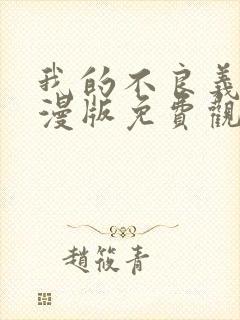 我的不良義
漫版免費觀
趙筱青